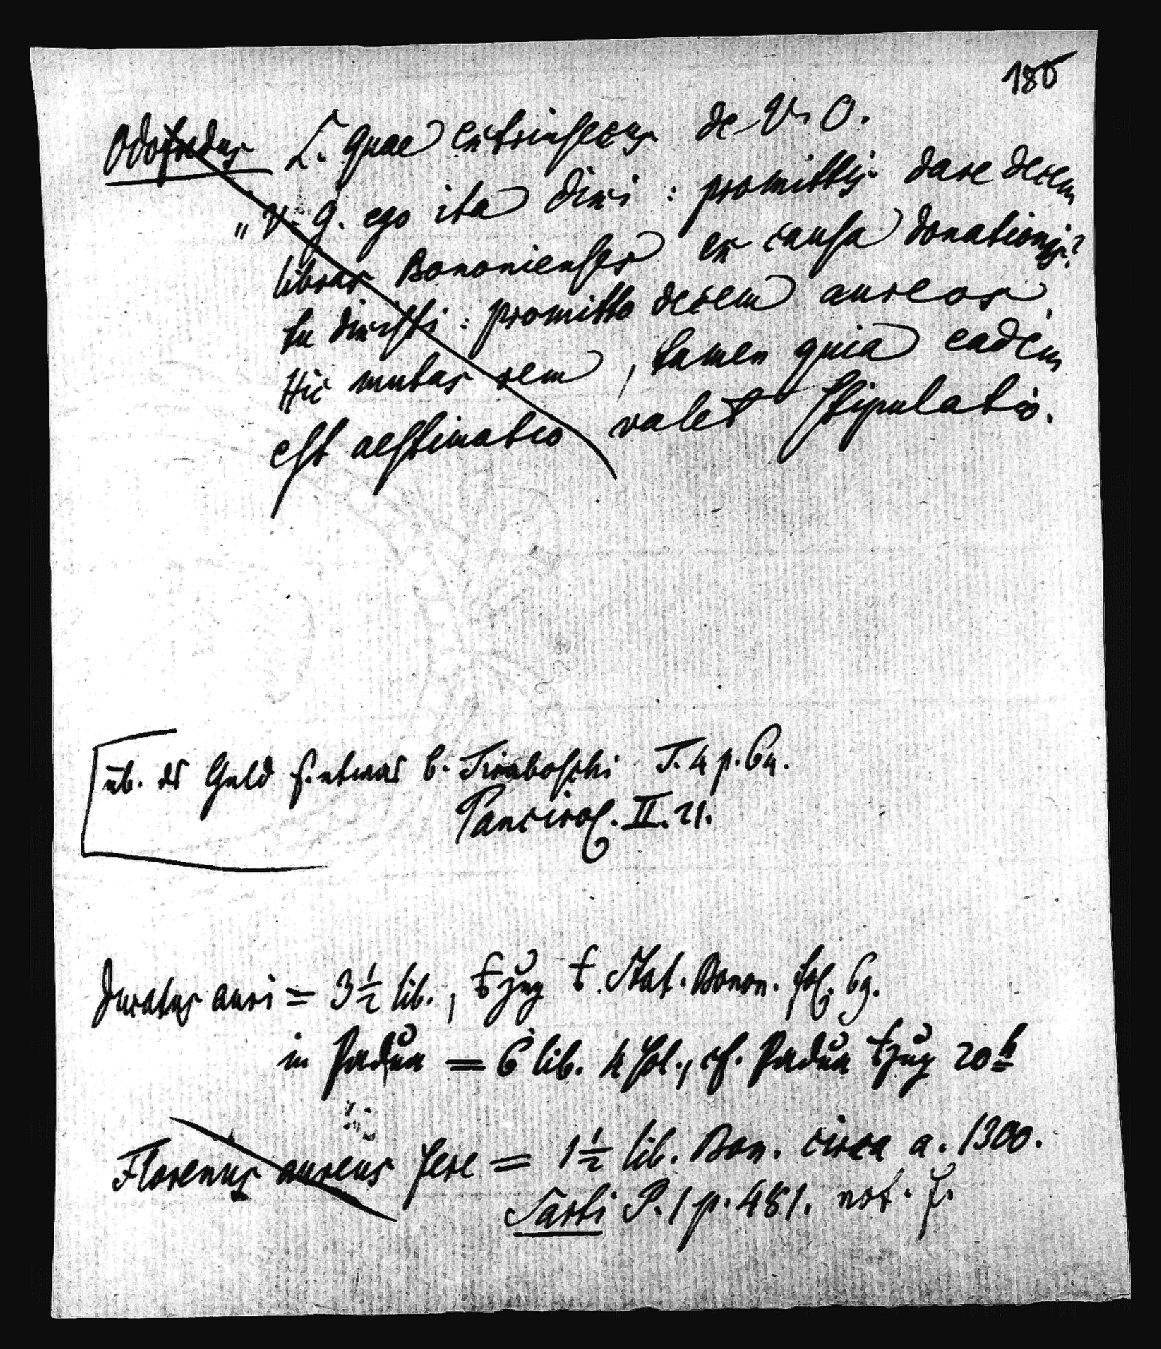 180
Odofredus L. quae extrinsecus de V. O.
"V. g. ego ita dixi: promittis dare decem
libras Bononienses ex causa donationis?
tu dixisti: promitto decem aureos,
Hic mutas rem, tamen quia eadem
est aestimatio valet stipulatio.
üb. das Geld s. etwas b. Tiraboschi T. 4 p. 64.
Pancirol. II. 21.
Ducatus auri = 3 1/2 lib., Stat. Bonon. fol. 69.
in Padua = 6 lib. 4 sol., cf. Padua 20 b
Florenus aureus fere = 1 1/2 lib. Bon. circa a. 1300.
Sarti P. 1 p. 481. not. f.